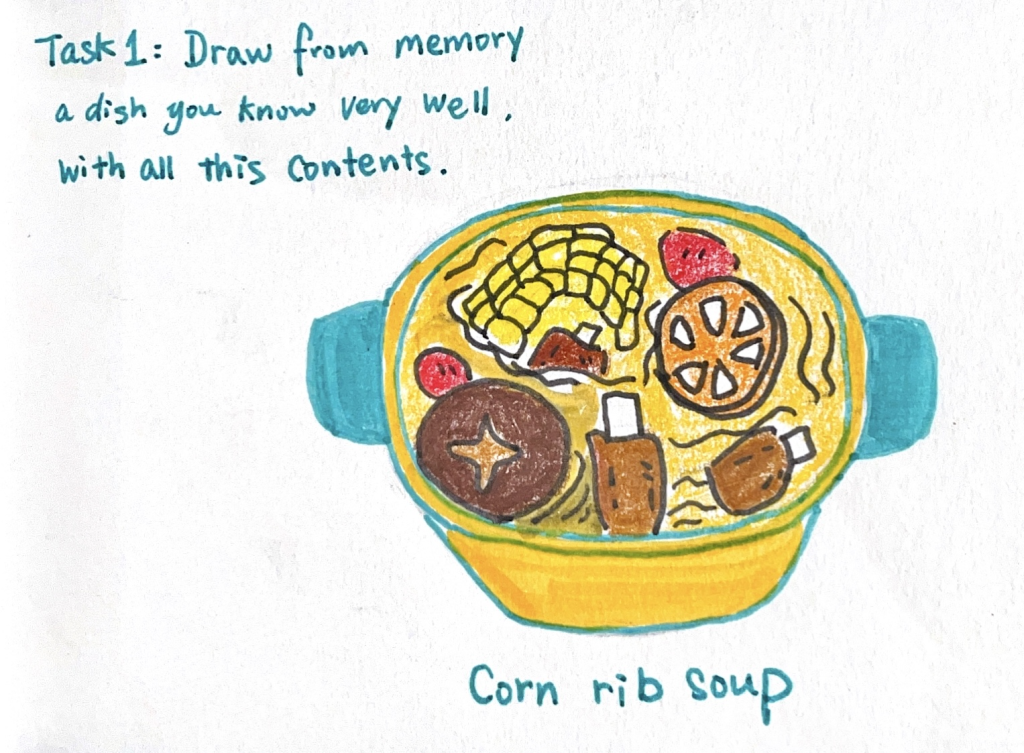 Task 1: Draw from memory
a dish you know very well,
with all this contents.
Corn rib soup